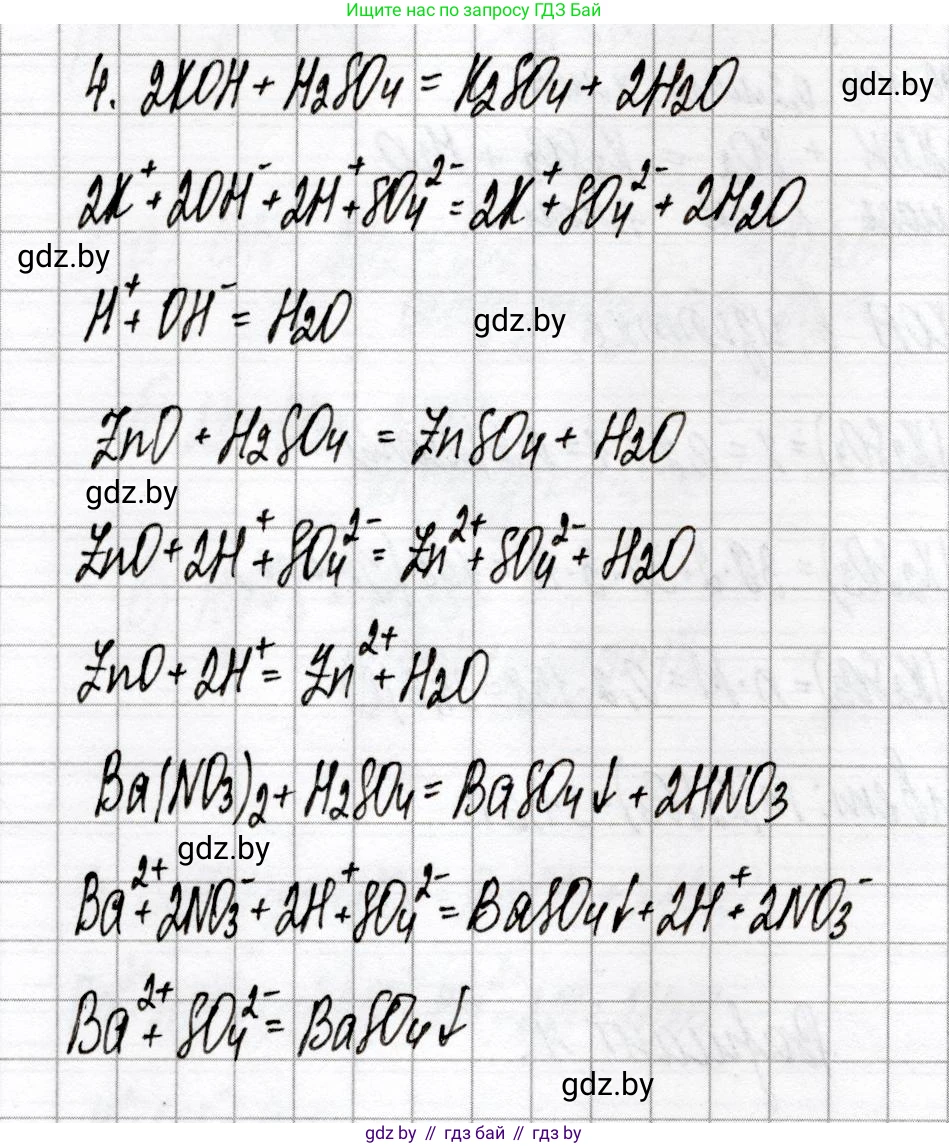 Ищите нас по запросу ГДЗ Бай
4. 2KOH + H2SO4 = K2SO4 + 2H2O
gdz.by
2K⁺ + 2OH⁻ + 2H⁺ + SO4²⁻ = 2K⁺ + SO4²⁻ + 2H2O
gdz.by
H⁺ + OH⁻ = H2O
gdz.by
ZnO + H2SO4 = ZnSO4 + H2O
gdz.by
ZnO + 2H⁺ + SO4²⁻ = Zn²⁺ + SO4²⁻ + H2O
ZnO + 2H⁺ = Zn²⁺ + H2O
Ba(NO3)2 + H2SO4 = BaSO4↓ + 2HNO3
gdz.by
Ba²⁺ + 2NO3⁻ + 2H⁺ + SO4²⁻ = BaSO4↓ + 2H⁺ + 2NO3⁻
Ba²⁺ + SO4²⁻ = BaSO4↓
gdz.by
gdz.by // гдз бай // гдз by